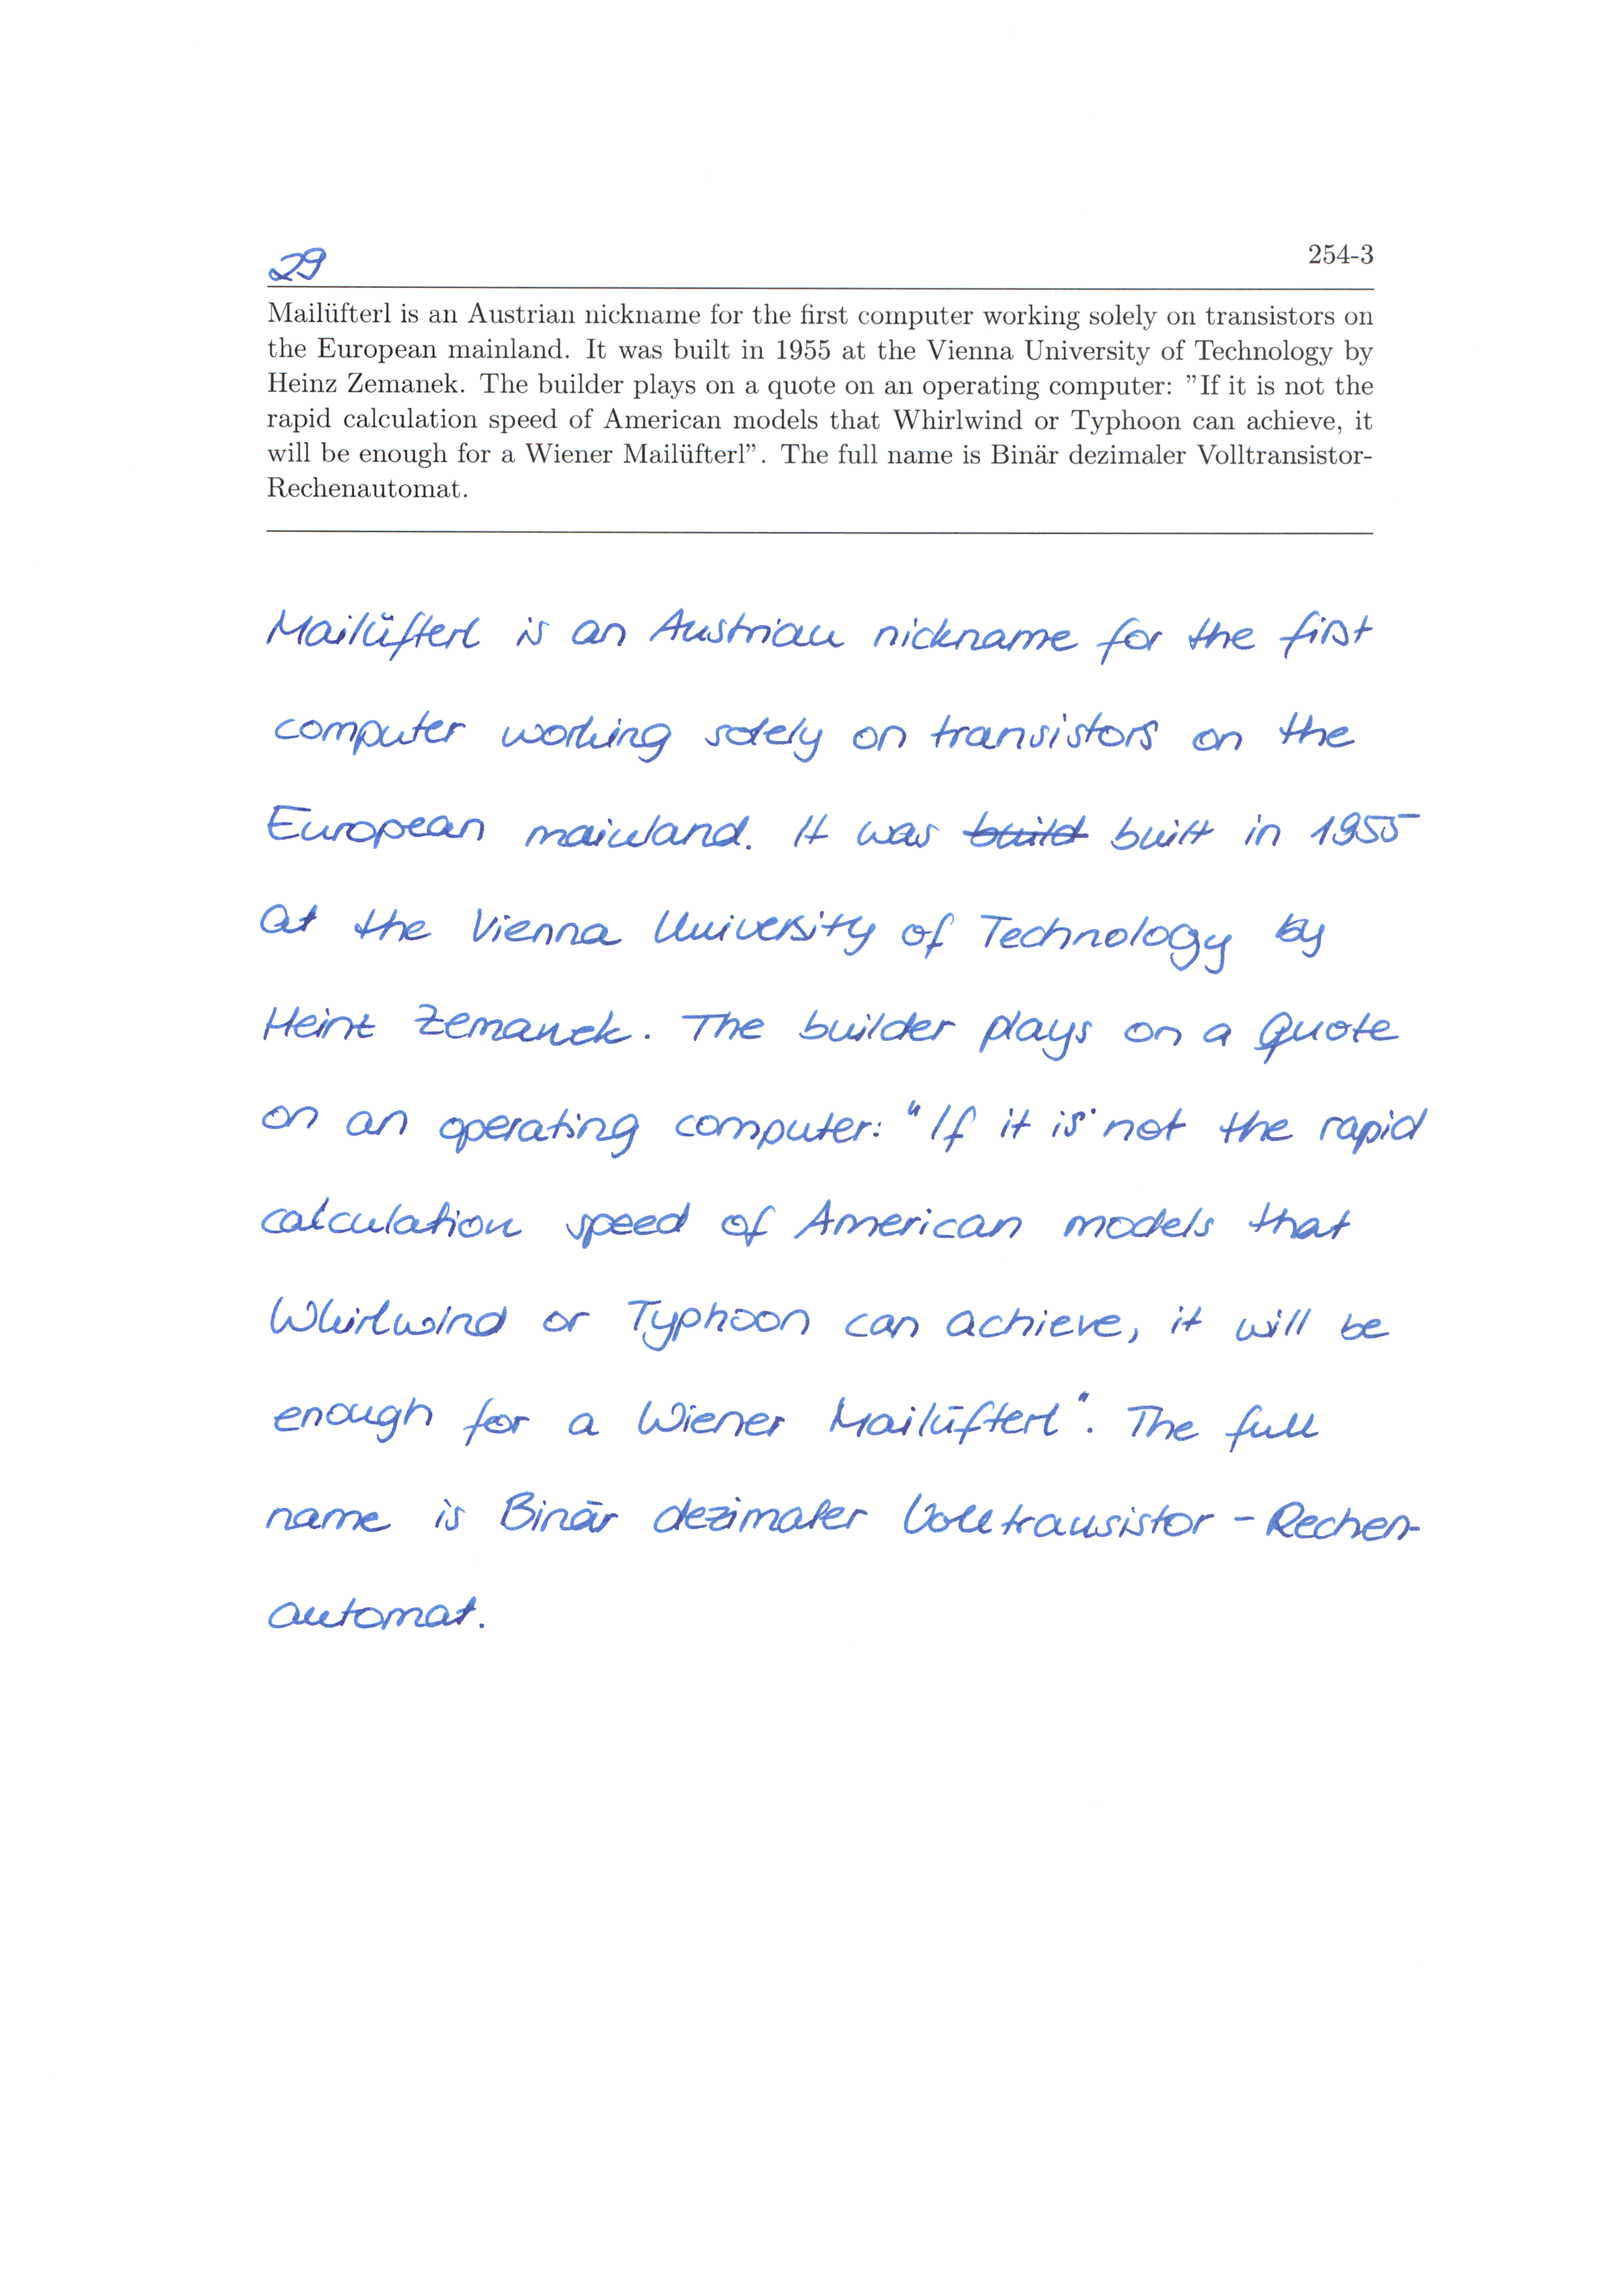 29
254-3
Mailüfterl is an Austrian nickname for the first computer working solely on transistors on
the European mainland. It was built in 1955 at the Vienna University of Technology by
Heinz Zemanek. The builder plays on a quote on an operating computer: ”If it is not the
rapid calculation speed of American models that Whirlwind or Typhoon can achieve, it
will be enough for a Wiener Mailüfterl”. The full name is Binär dezimaler Volltransistor-
Rechenautomat.
Mailüfterl is an Austrian nickname for the first
computer working solely on transistors on the
European mainland. It was build built in 1955
at the Vienna University of Technology by
Heinz Zemanek. The builder plays on a quote
on an operating computer: "If it is not the rapid
calculation speed of American models that
Whirlwind or Typhoon can achieve, it will be
enough for a Wiener Mailüfterl". The full
name is Binär dezimaler Volltransistor - Rechen-
automat.